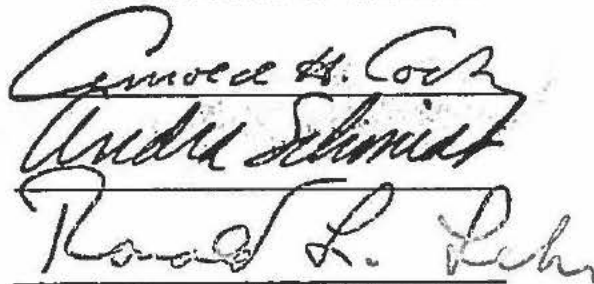 Arnold H. Cock
Andra Schmidt
Ronald L. Lehr